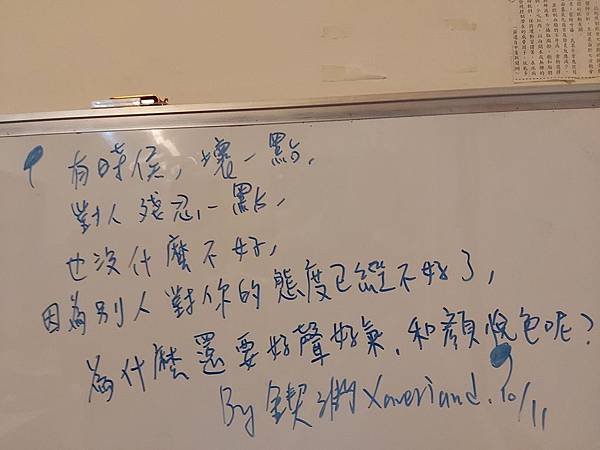 有時侯，壞一點，
對人殘忍一點，
也沒什麼不好，
因為別人對你的態度已經不好了，
為什麼還要好聲好氣，和顏悅色呢？
By Xaveriand. 10/11